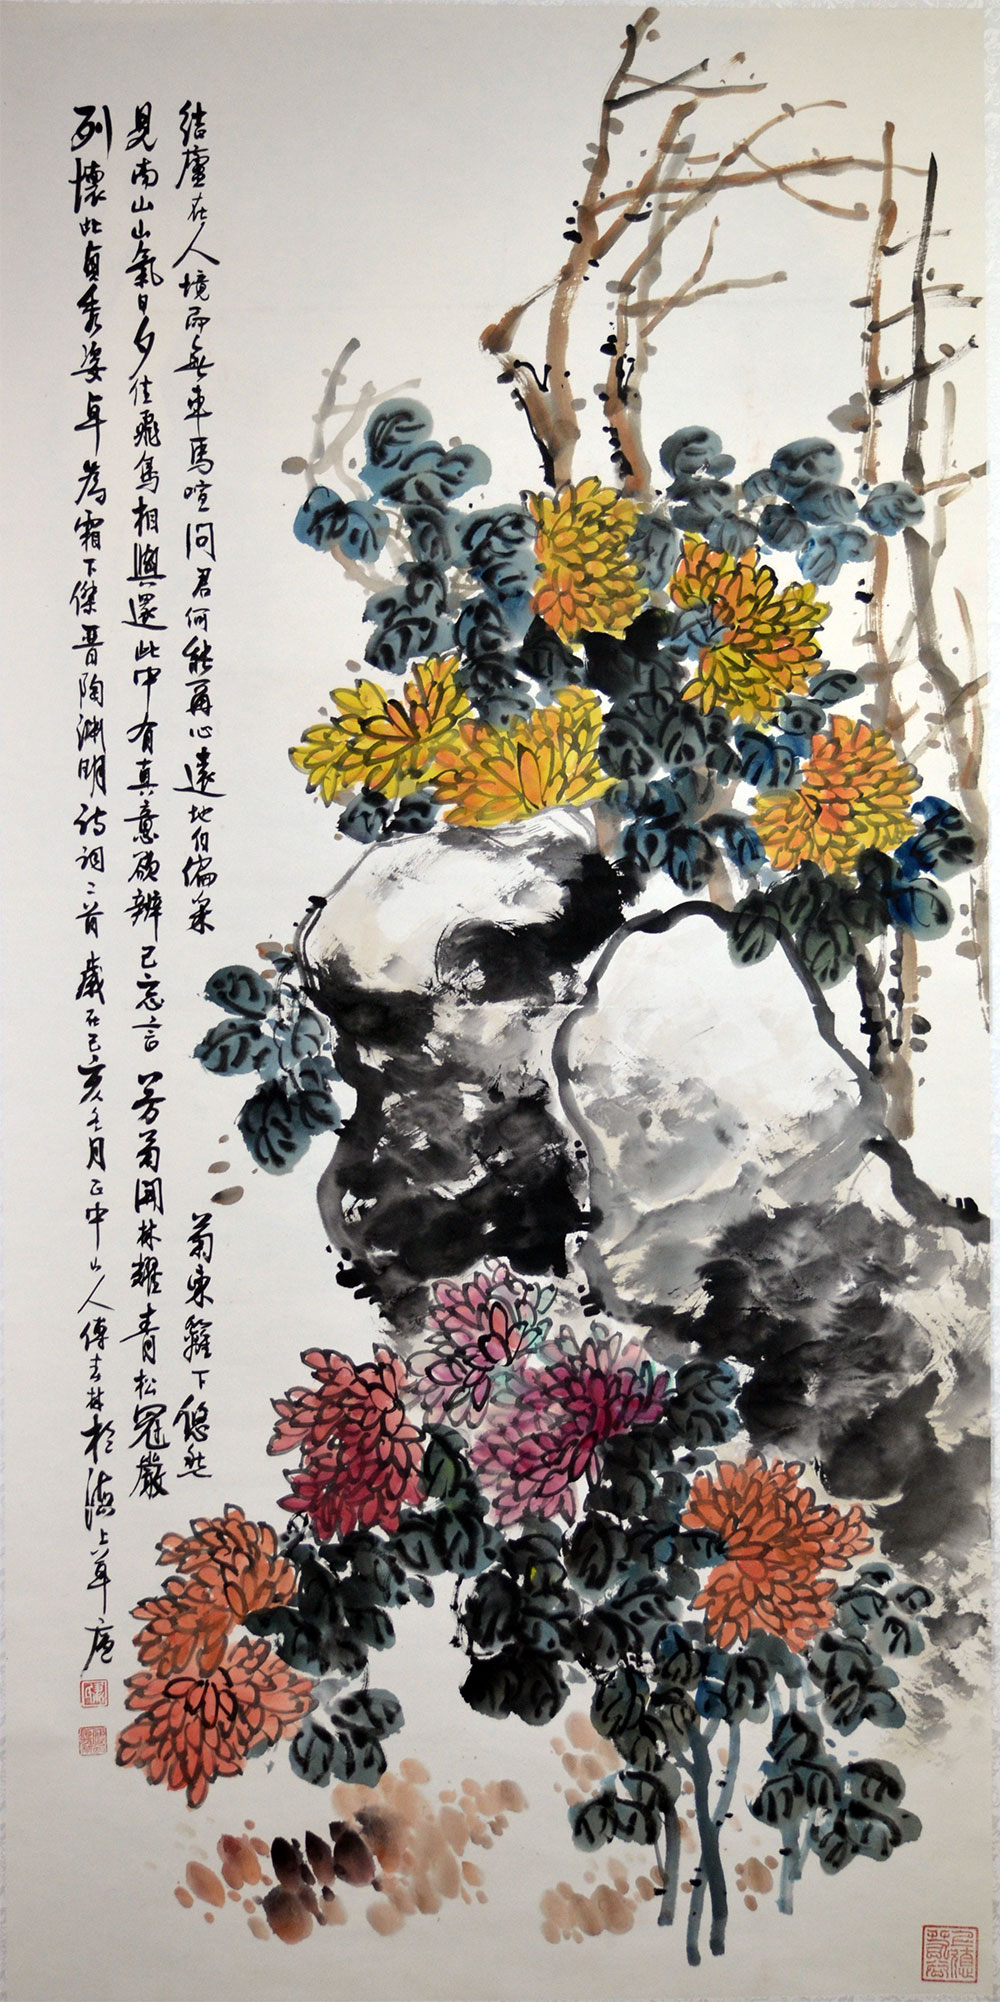 結廬在人境而無車馬喧問君何能爾心遠地自偏采菊東籬下悠然
見南山山氣日夕佳飛鳥相與還此中有真意欲辨已忘言芳菊開林耀青松冠巖
列懷此貞秀姿卓為霜下傑晉陶淵明詩詞二首歲在己亥冬月正中山人傅於滬上草廬